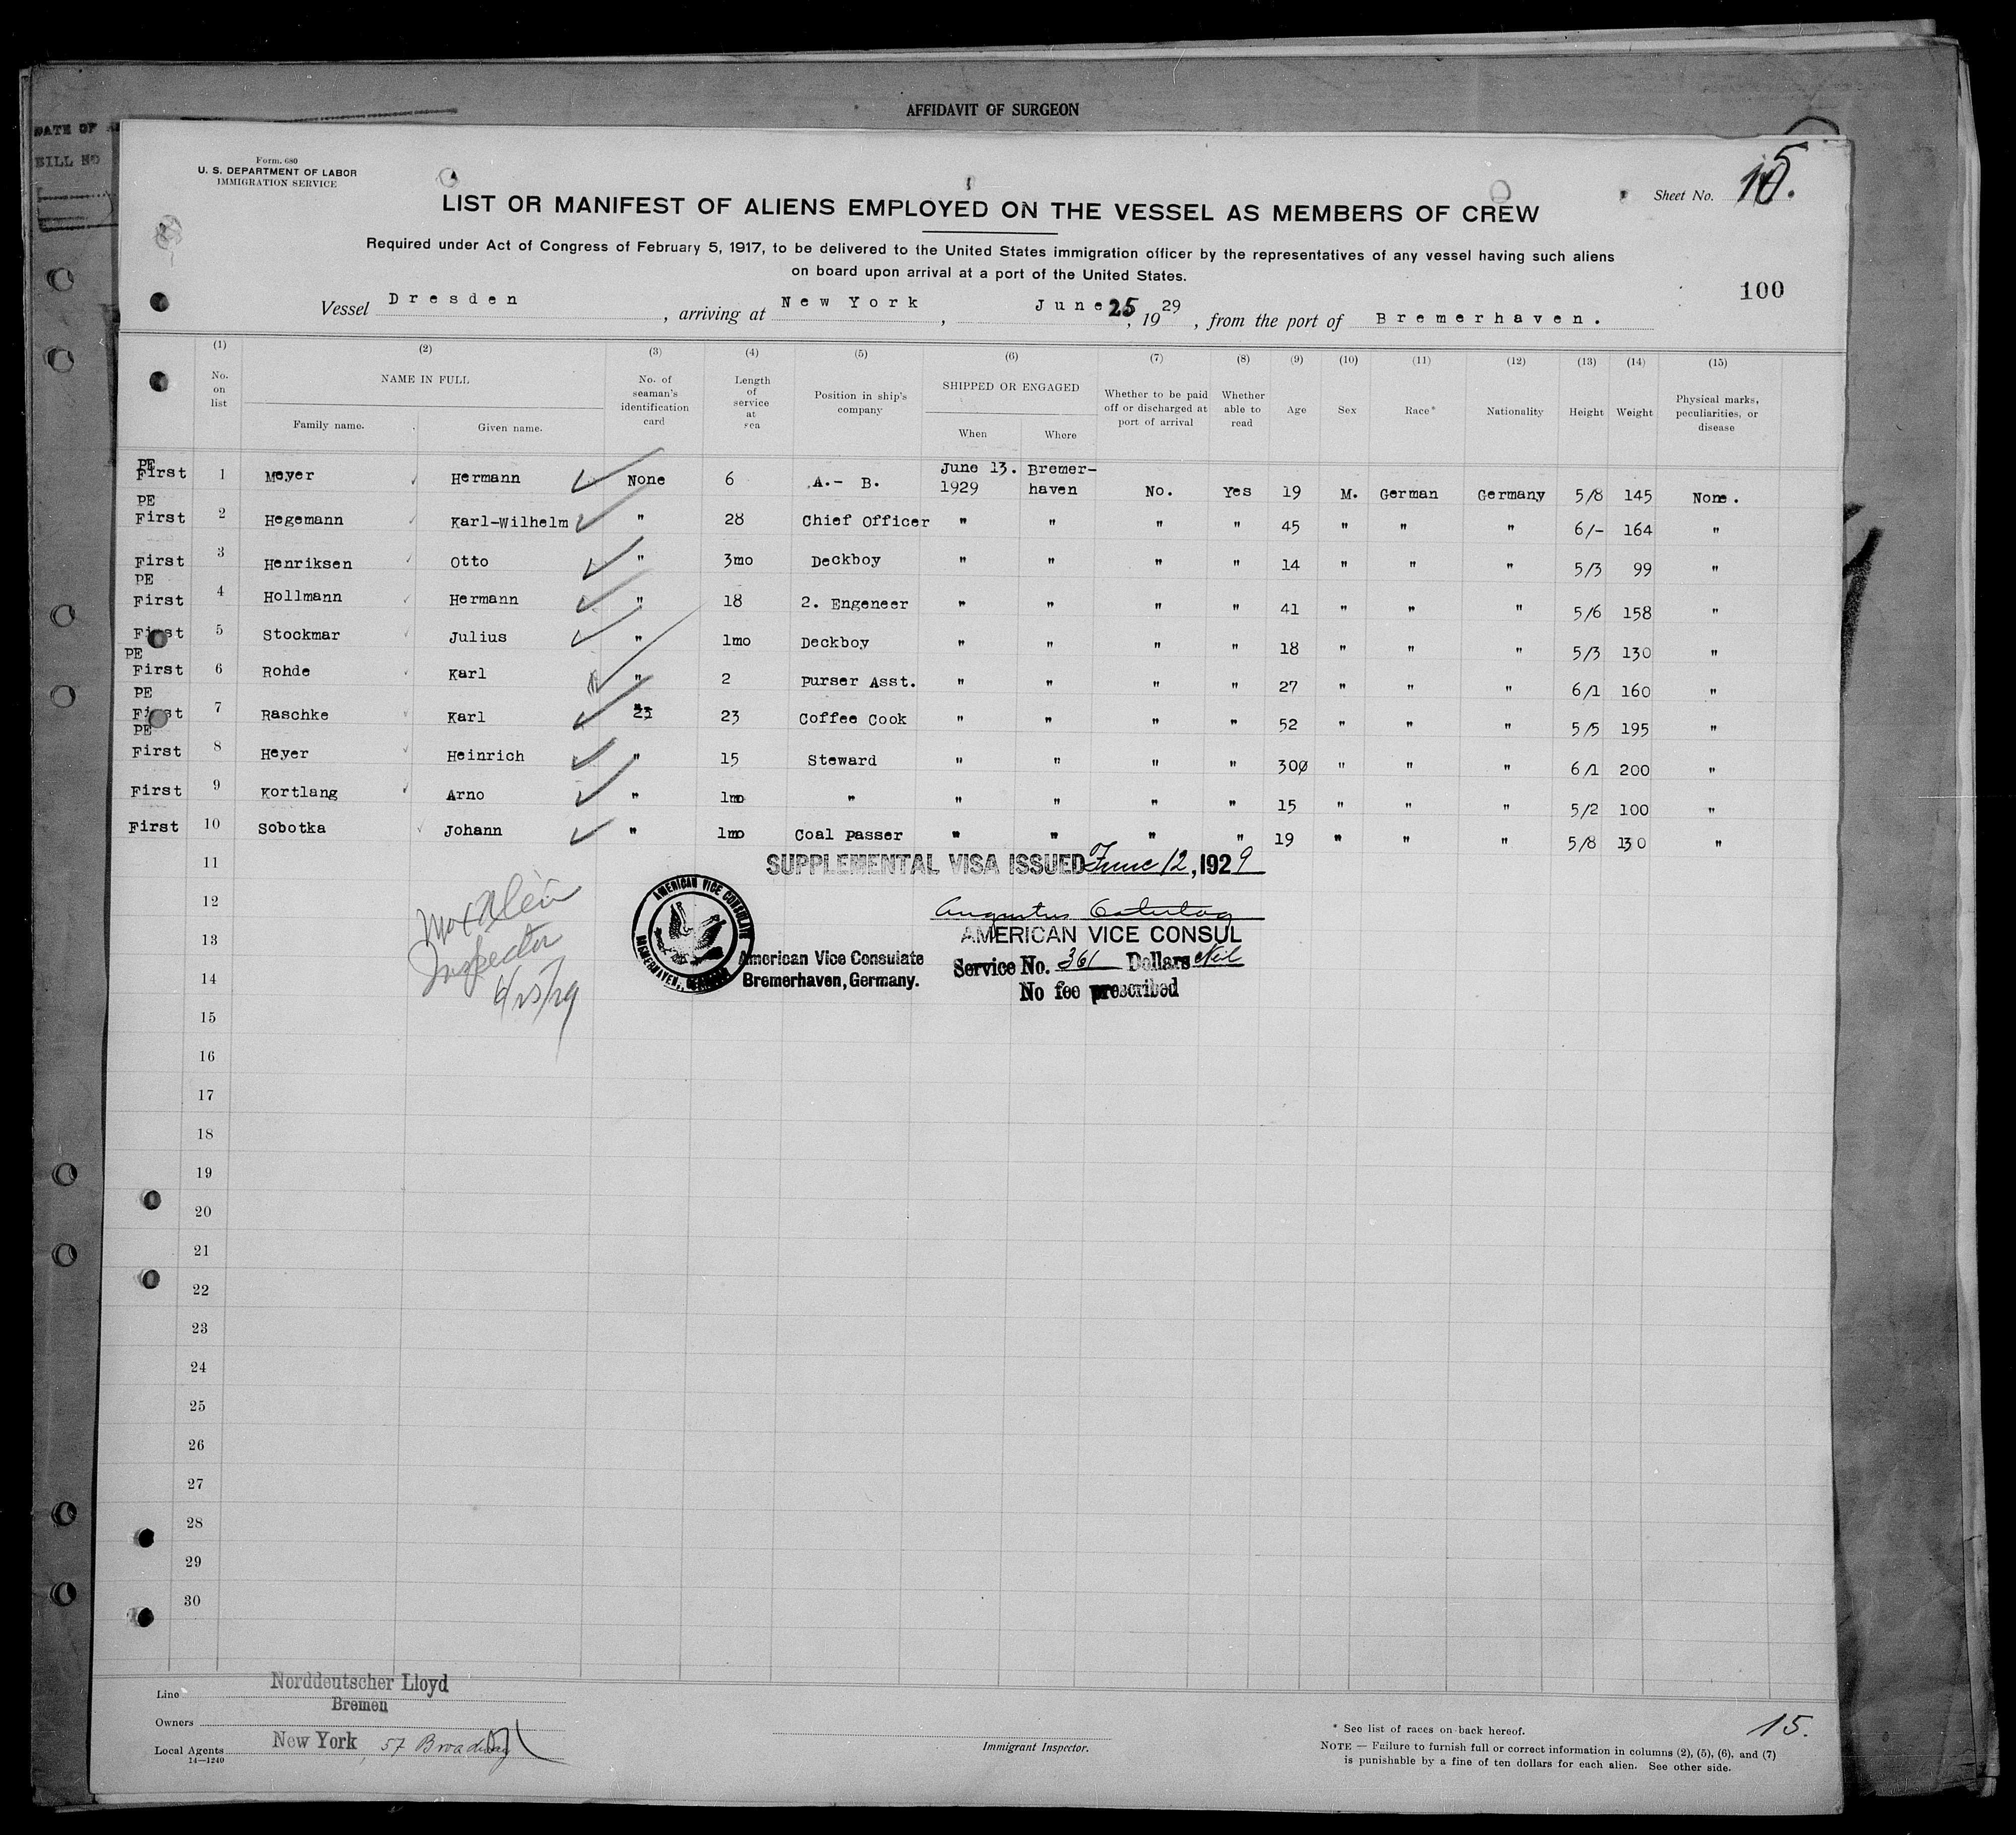 AFFIDAVIT OF SURGEON
DATE OF
BILL NO
Form. 680
U. S. DEPARTMENT OF LABOR
IMMIGRATION SERVICE
Sheet No. 15.
LIST OR MANIFEST OF ALIENS EMPLOYED ON THE VESSEL AS MEMBERS OF CREW
Required under Act of Congress of February 5, 1917, to be delivered to the United States immigration officer by the representatives of any vessel having such aliens
on board upon arrival at a port of the United States.
100
Vessel Dresden, arriving at New York, June 25, 1929, from the port of Bremerhaven.
(1) (2) (3) (4) (5) (6) (7) (8) (9) (10) (11) (12) (13) (14) (15)
No. on list NAME IN FULL Family name. Given name. No. of seaman's identification card Length of service at sea Position in ship's company SHIPPED OR ENGAGED When Where Whether to be paid off or discharged at port of arrival Whether able to read Age Sex Race* Nationality Height Weight Physical marks, peculiarities, or disease
PE
First 1 Meyer Hermann None 6 A.- B. June 13. 1929 Bremer-haven No. Yes 19 M. German Germany 5/8 145 None.
PE
First 2 Hegemann Karl-Wilhelm " 28 Chief Officer " " " " 45 " " " 6/- 164 "
First 3 Henriksen Otto " 3mo Deckboy " " " " 14 " " " 5/3 99 "
PE
First 4 Hollmann Hermann " 18 2. Engeneer " " " " 41 " " " 5/6 158 "
First 5 Stockmar Julius " 1mo Deckboy " " " " 18 " " " 5/3 130 "
PE
First 6 Rohde Karl " 2 purser Asst. " " " " 27 " " " 6/1 160 "
PE
First 7 Raschke Karl " 23 Coffee Cook " " " " 52 " " " 5/5 195 "
PE
First 8 Heyer Heinrich " 15 Steward " " " " 30 " " " 6/1 200 "
First 9 Kortlang Arno " 1mo " " " " " 15 " " " 5/2 100 "
First 10 Sobotka Johann " 1mo Coal passer " " " " 19 " " " 5/8 130 "
11 SUPPLEMENTAL VISA ISSUED June 12, 1929
12
13 AMERICAN VICE CONSUL
Inspector
AMERICAN VICE CONSULATE BREMERHAVEN, GERMANY
American Vice Consulate
Service No. 361 Dollars Nil
14 Bremerhaven, Germany.
No fee prescribed
6/25/29
15
16
17
18
19
20
21
22
23
24
25
26
27
28
29
30
Line Norddeutscher Lloyd
Bremen
Owners
Local Agents New York, 57 Broadway
14—1240
Immigrant Inspector.
* See list of races on back hereof.
NOTE — Failure to furnish full or correct information in columns (2), (5), (6), and (7)
is punishable by a fine of ten dollars for each alien. See other side.
15.